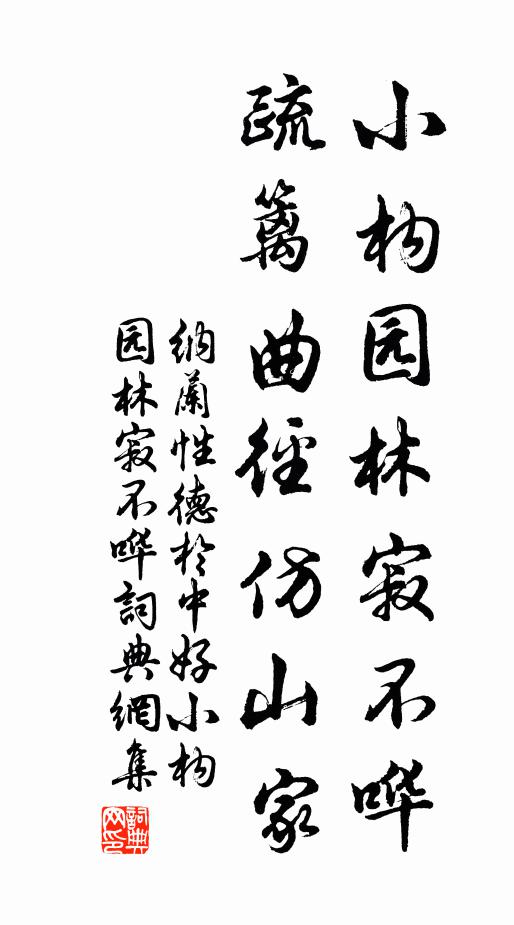 小构园林寂不哗
疏篱曲径仿山家
纳兰性德於中好小构
园林寂不哗詞典網集
詞典網印